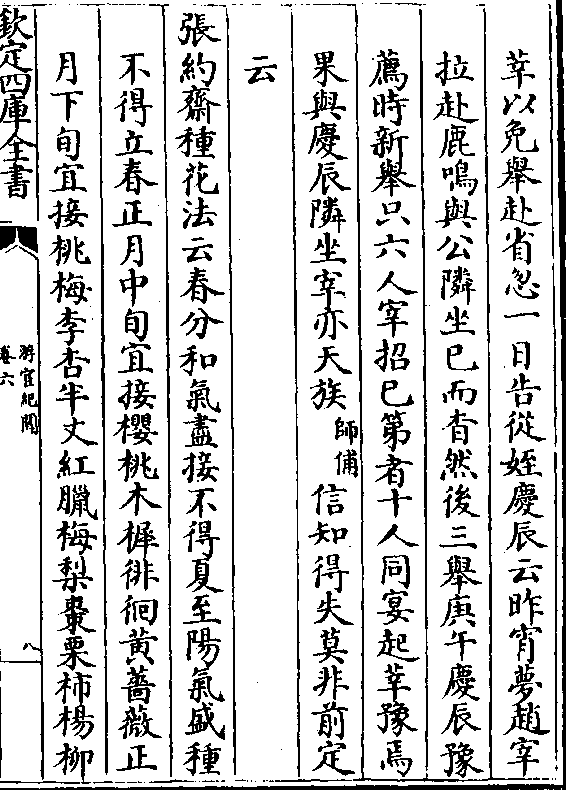 莘以免舉赴省忽一日告從姪慶辰云昨宵夢趙宰
拉赴鹿鳴與公隣坐已而杳然後三舉庚午慶辰豫
薦時新舉只六人宰招已第者十人同宴起莘豫焉
果與慶辰隣坐宰亦天族師𠋣信知得失莫非前定
云
張約齋種花法云春分和氣盡接不得夏至陽氣盛種
不得立春正月中旬宜接櫻桃木樨徘徊黃薔薇正
月下旬宜接桃梅李杏半丈紅臘梅梨棗栗柿楊柳
欽定四庫全書
游宦紀聞
卷六
八